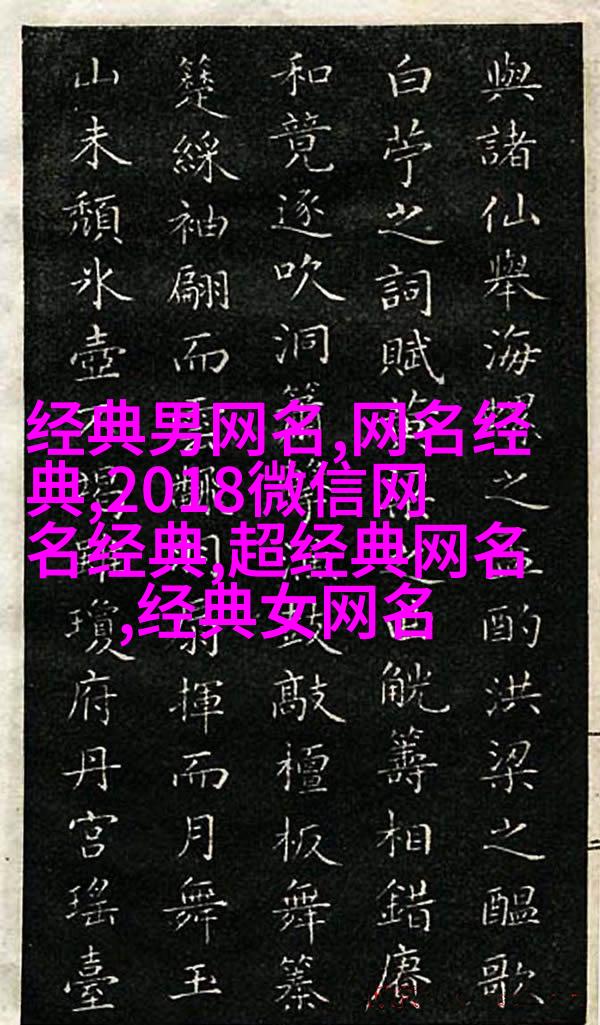 经典男网名,网名经
典,2018微信网
名经典,超经典网名
,经典女网名
與諸仙舉海螺之酌洪梁之醞歌
白苧之詞賦觥籌相錯賡
和竟逐吹洞鼓敲檀板舞
綵袖翩而揮而月舞玉
山未頹氷壺瓊府丹宮瑤臺